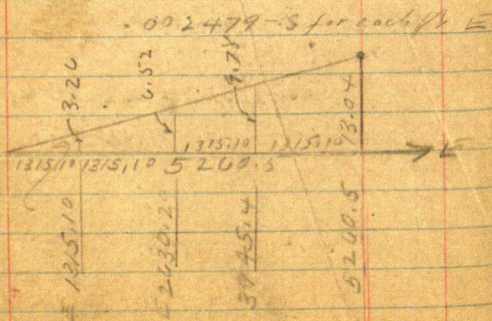 .002479-S for each ft E
3.26
6.52
9.78
13.04
1315,10 1315,10 5260.5 1315,10 1315,10
E
1315.10
2630.2
3945.4
5260.5